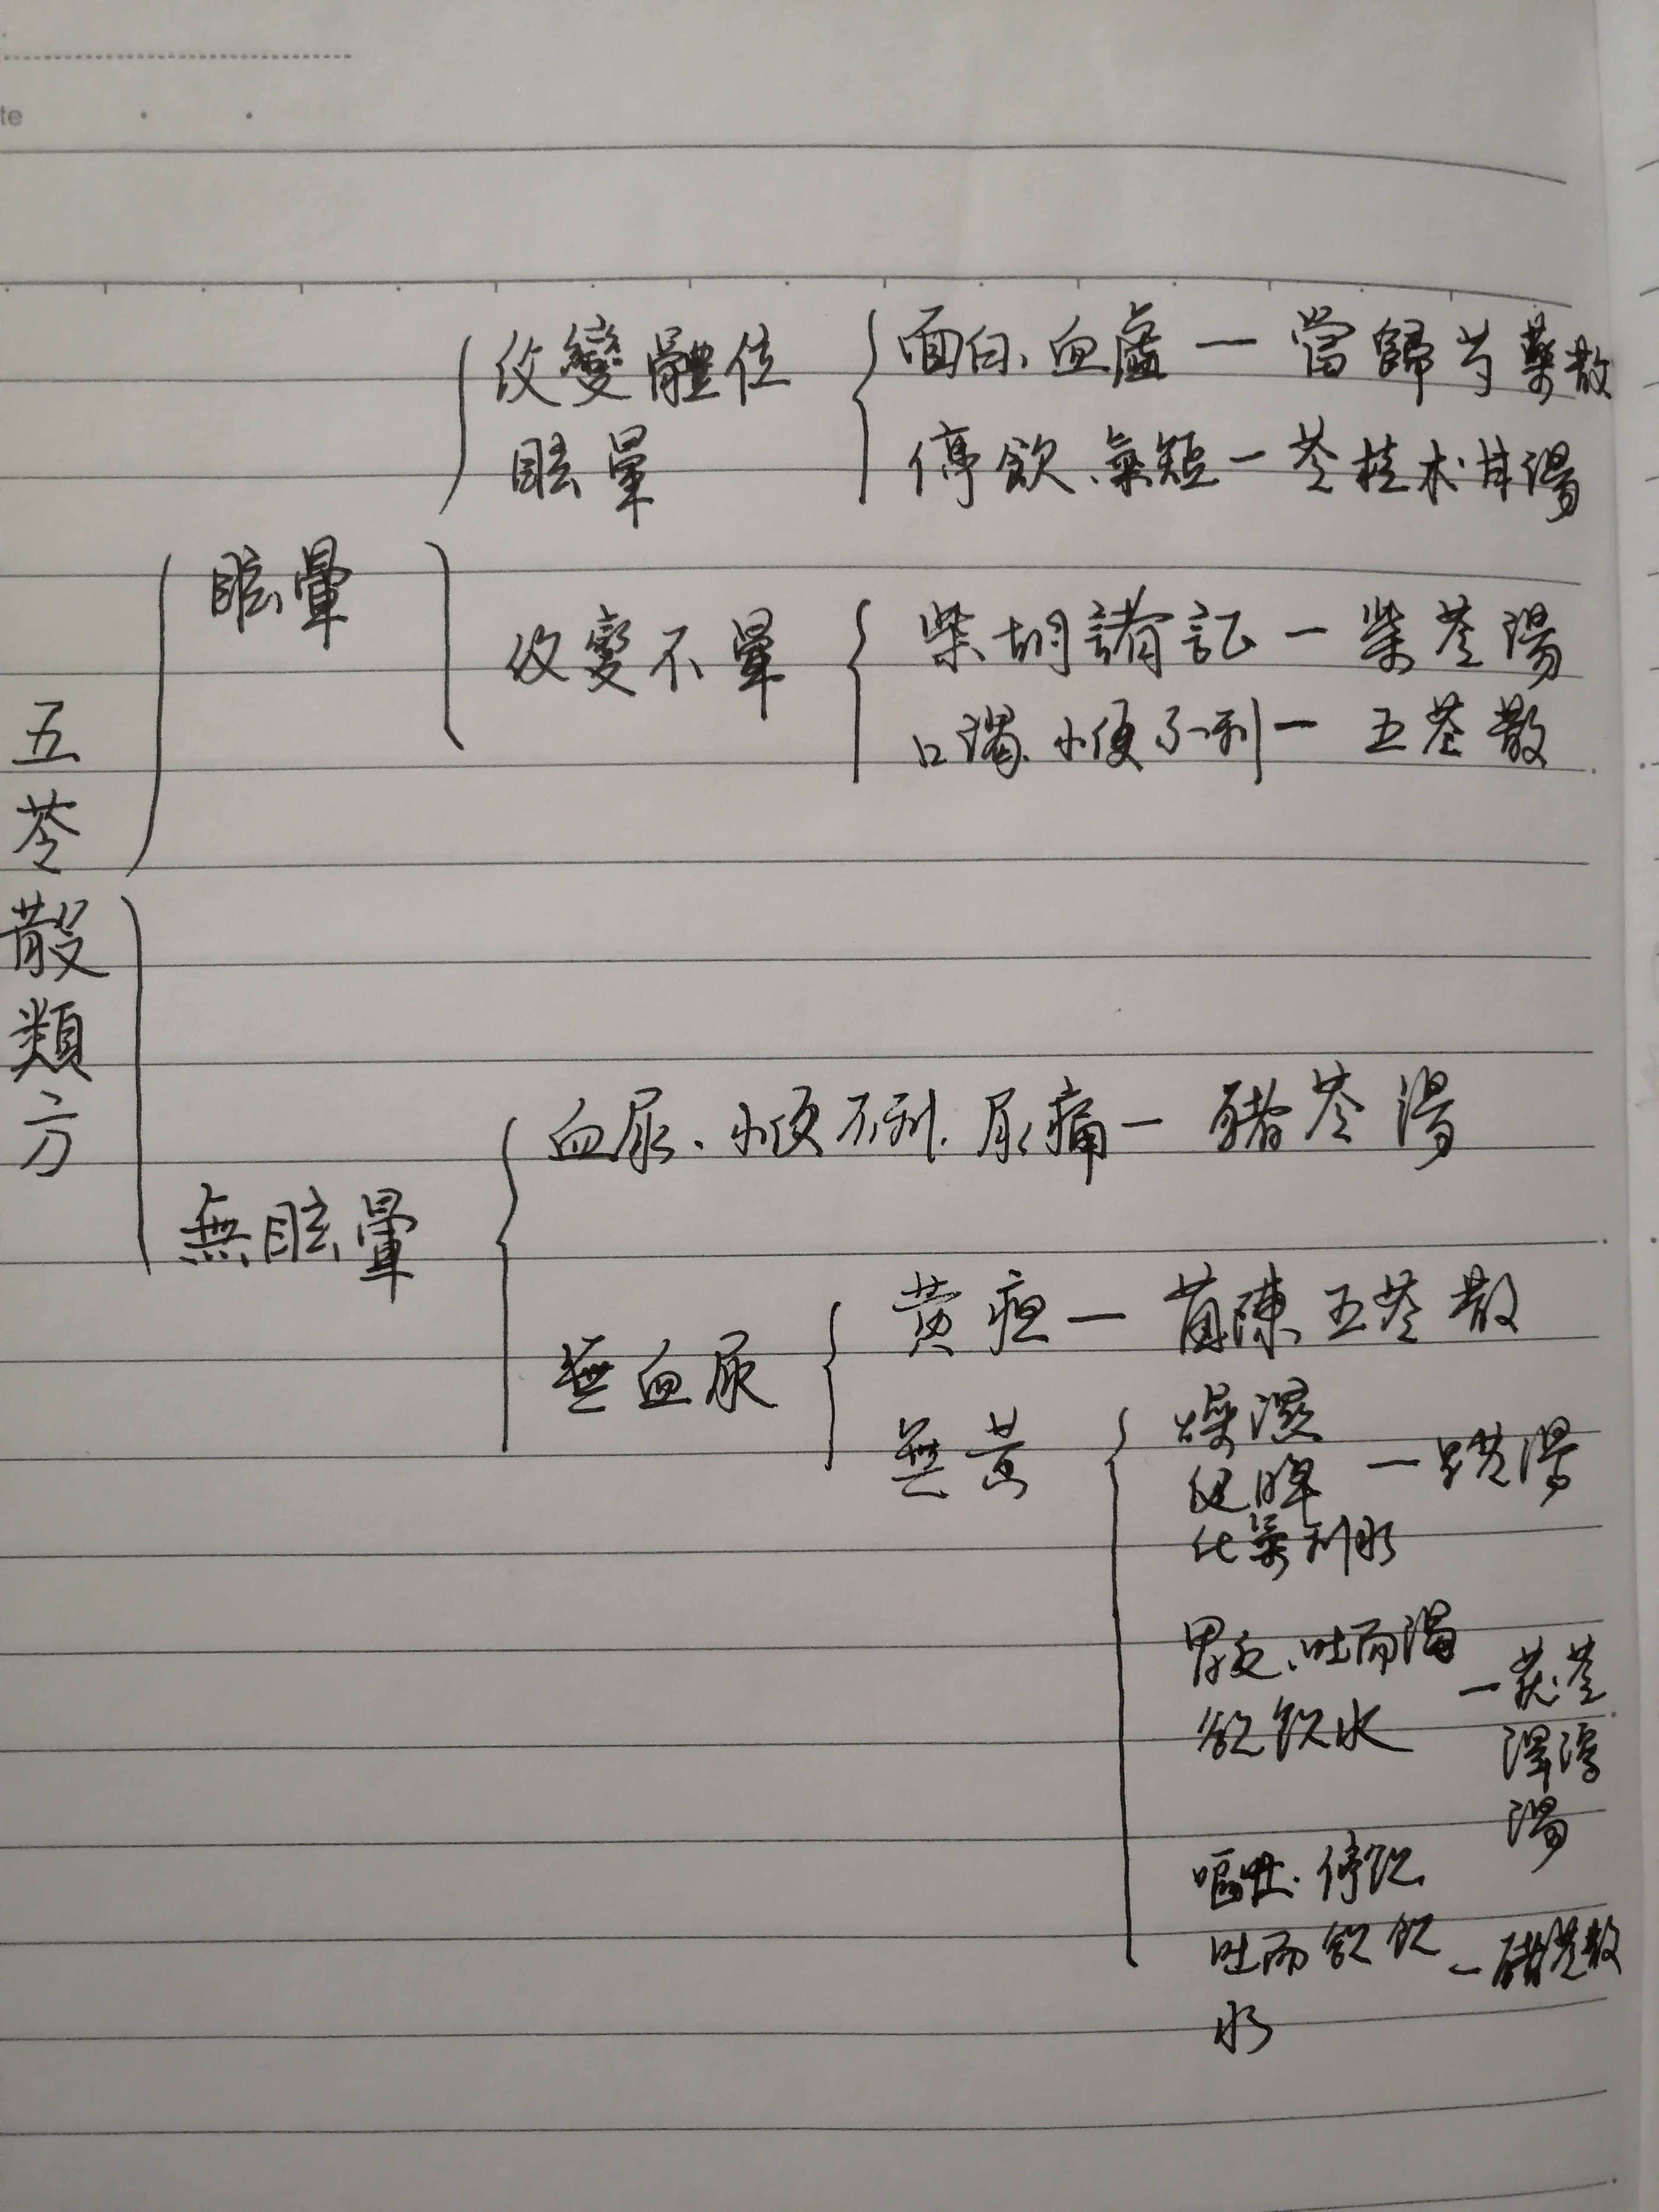 te
五苓散類方
眩暈
改變體位
眩暈
面白、血虛一當歸芍藥散
停飲、氣短一苓桂术甘湯
改變不暈
柴胡諸証一柴苓湯
口渴、小便不利一五苓散
無眩暈
血尿、小便不利、尿痛一豬苓湯
無血尿
黃疸一茵陳五苓散
無黃
燥濕
健脾
化氣利水
一胃苓湯
胃反、吐而渴
欲飲水
一茯苓
澤瀉
湯
嘔吐、停飲
吐而欲飲
水
一豬苓散